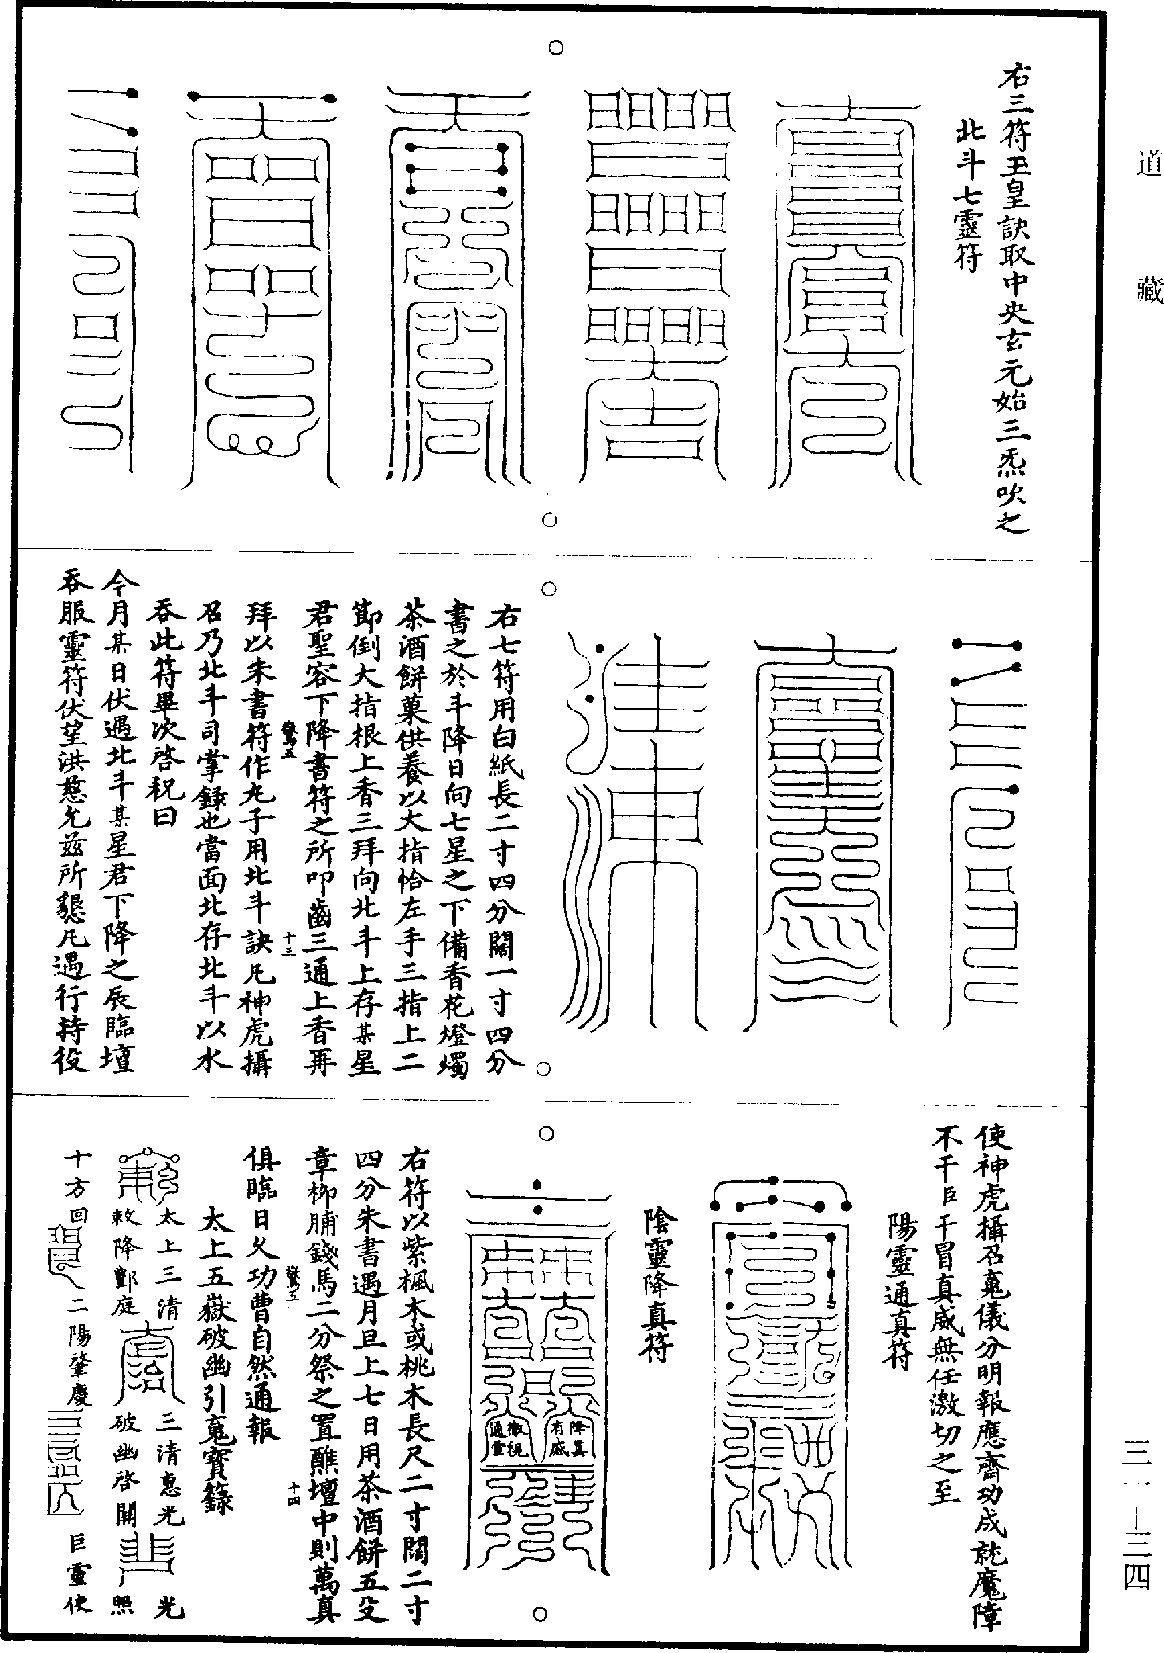 道藏
右三符玉皇訣取中央玄元始三炁吹之
北斗七靈符
右七符用白紙長二寸四分闊一寸四分
書之於斗降日向七星之下備香花燈燭
茶酒餅菓供養以大指恰左手三指上二
節倒大指根上香三拜向北斗上存某星
君聖容下降書符之所叩齒三通上香再
拜以朱書符作丸子用北斗訣凡神虎攝
召乃北斗司掌錄也當面北存北斗以水
吞此符畢次啓祝曰
今月某日伏遇北斗某星君下降之辰臨壇
吞服靈符伏望洪慈允茲所懇凡遇行持役
使神虎攝召魂儀分明報應齋功成就魔障
不干臣干冒真威無任激切之至
陽靈通真符
陰靈降真符
降真
有感
徹視
通靈
右符以紫楓木或桃木長尺二寸闊二寸
四分朱書遇月旦上七日用茶酒餅五分
章柳脯錢馬二分祭之置醮壇中則萬真
俱臨日久功曹自然通報
十三
十四
太上五嶽破幽引魂寶籙
太上三清
三清惠光
光
敕降酆庭
破幽啓關
照
十方回
二陽肇慶
巨靈使
三一—三四